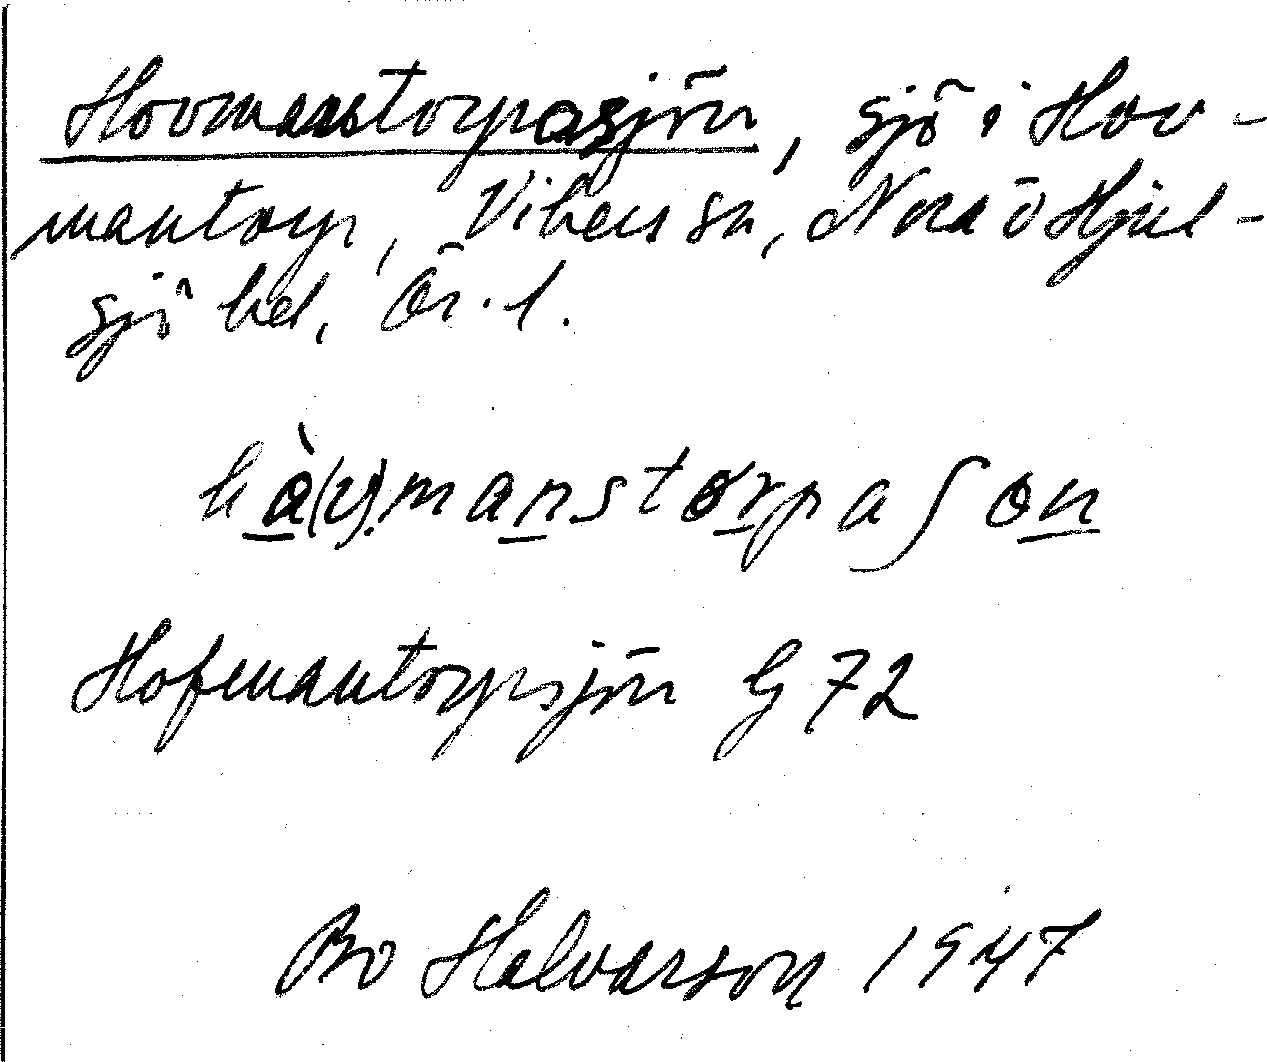 Hovmanstorpasjön, sjö i Hov-
mantorp, Vibers sn, Nora o Hjul-
sjö bel, Ör. l.
hà(v)manstorpaʃon
Hofmantorpsjön G 72
Bo Halvarson 1947